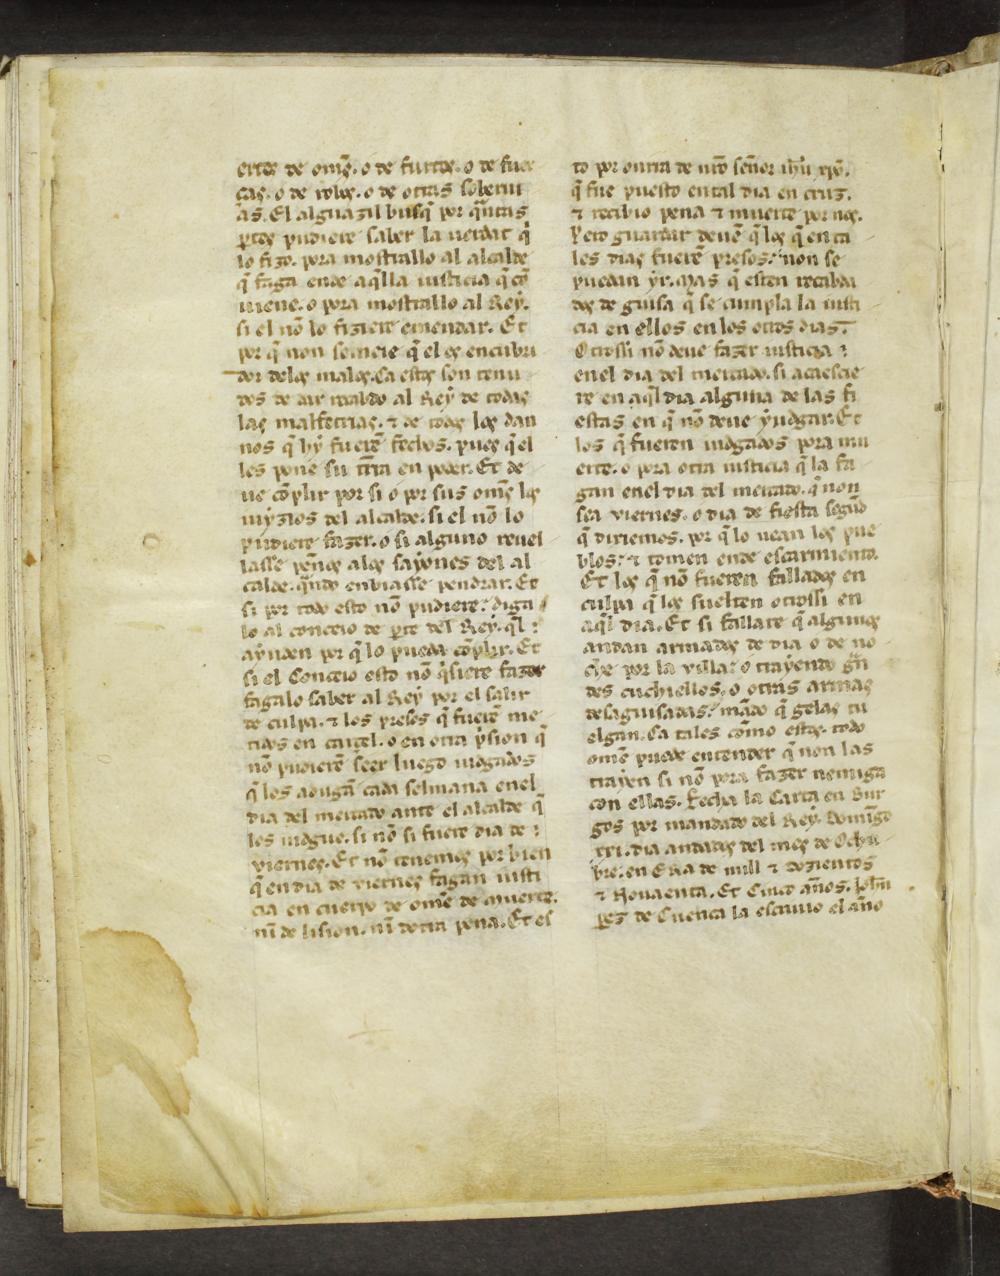 ertos de om̃e. o de furtos. o de fuer
ças. o de robos. o de otras soberui
as. El alguazil busq̃ por q̃ntas
ꝑtes pudiere saber la uerdat q̃
lo fizo. pora mostrallo al alcalde
q̃ faga ende aq̃lla iusticia q̃ cõ
uiene. o pora mostrallo al Rey.
si el nõ lo fiziere emendar. Et
por q̃ non semeie q̃ el es encubri
dor delos malos. Ca estos son tenu
dos de dar recabdo al Rey de todas
las malfetrias. ⁊ de todos los dan
nos q̃ hy fuerẽ fechos. pues q̃ el
les pone su tr̃ra en poder. Et de
ue cõplir por si o por sus om̃es los
iuyzios del alcalde. si el nõ lo
pudiere fazer. o si alguno reuel
lasse peños alos sayones del al
calde. q̃ndo enbiasse pendrar. Et
si por todo esto nõ pudiere: diga
lo al conceio de ꝑte del Rey. q̃l :
ayuden por q̃ lo pueda cõplir. Et
si el Conceio esto nõ q̃siere fazer
fagalo saber al Rey por el salir
de culpa. ⁊ los presos q̃ fuerẽ me
tidos en carcel. o en otra p̃sion q̃
nõ pudierẽ seer luego iudgados
q̃ los adugã cada selmana enel
dia del mercado ante el alcalde q̃
los iudgue. si nõ si fuere dia de :
viernes. Et nõ tenemos por bien
q̃ en dia de viernes fagan iusti
cia en cuerpo de om̃e de muerte.
nĩ de lision. nĩ dotra pena. Et es
to por onrra de nr̃o señor ih̃u xp̃o.
q̃ fue puesto en tal dia en cruz.
⁊ recibio pena ⁊ muerte por nos.
Pero guardar deuẽ q̃ los q̃ en ta
les dias fuerẽ presos: non se
puedan yr. mas q̃ esten recabda
dos de guisa q̃ se cumpla la iusti
cia en ellos en los otros dias.
Otrossi nõ deue fazer iusticia :
enel dia del mercado. si acaescie
re en aq̃l dia alguna de las fi
estas en q̃ nõ deue yudgar. Et
los q̃ fueren iudgados pora mu
erte. o pora otra iusticia q̃ la fa
gan enel dia del mercado. q̃ non
sea viernes. o dia de fiesta segũd
q̃ dixiemos. por q̃ lo uean los pue
blos: ⁊ tomen ende escarmiento.
Et los q̃ nõ fueren fallados en
culpa q̃ los suelten otrossi en
aq̃l dia. Et si fallare q̃ algunos
andan armados de dia o de no
che por la villa: o trayendo grã
des cuchiellos, o otras armas
desaguisadas: mãdo q̃ gelas tu
elgan. Ca tales cõmo estos. todo
om̃e puede entender q̃ non las
trayen si nõ pora fazer nemiga
con ellas. Fecha la Carta en Bur
gos por mandado del Rey. Domĩgo
xxi. dia andados del mes de Ochu
bre. en Era de mill ⁊ dozientos
⁊ Nouaenta. Et Cinco años. Joh̃n
ꝑez de Cuenca la escriuio el año